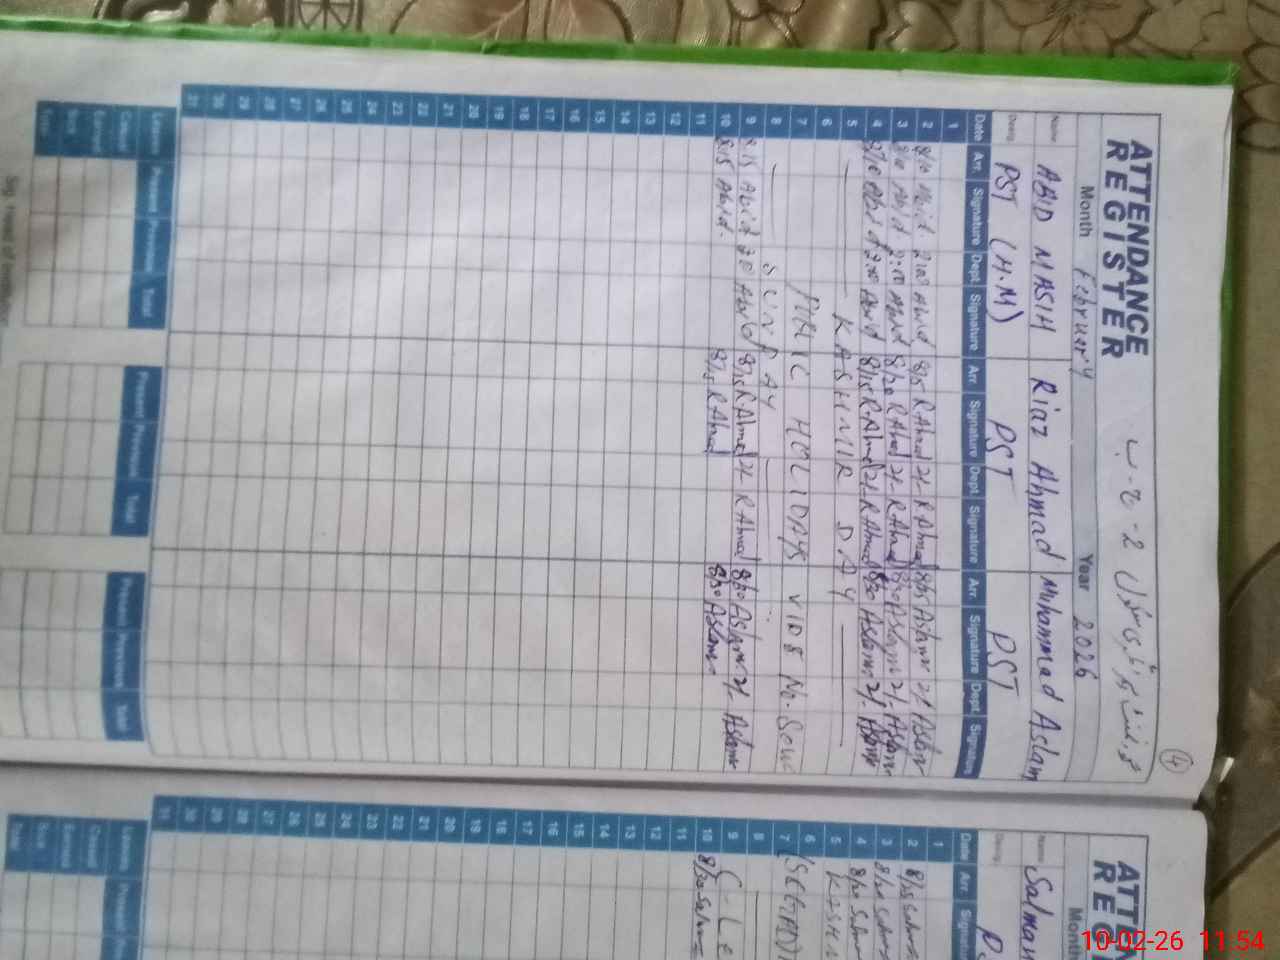 ATTENDANCE
REGISTER
Month February Year 2026
Name ABID MASIH Riaz Ahmad Muhammad Aslam
Desig PST (H.M) PST PST
Date Arr. Signature Dept. Signature Arr. Signature Dept. Signature Arr. Signature Dept. Signature
1
2 8/10 Abid 2:00 Abid 8/15 R Ahmad 2/- R Ahmad 8/15 Aslam 2/- Aslam
3 8/10 Abid 2:00 Abid 8/20 R Ahmad 2/- R Ahmad 8/20 Aslam 2/- Aslam
4 8/10 Abid 2:00 Abid 8/15 R Ahmad 2/- R Ahmad 8/20 Aslam 2/- Aslam
5 KASHMIR DAY
6
7 PUBLIC HOLIDAYS VIDE No.
8 SUNDAY
9 8/15 Abid Abid 8/15 R Ahmad 2/- R Ahmad 8/20 Aslam 2/- Aslam
10 8/15 Abid 8/15 R Ahmad 8/20 Aslam
11
12
13
14
15
16
17
18
19
20
21
22
23
24
25
26
27
28
29
30
31
Leaves Present Previous Total Present Previous Total Present Previous Total
Casual
Earned
Sick
Total
4
ATTEN
REG
Month
Name Salman
Desig
Date Arr. Signatu
1
2 8/15
3 8/20
4 8/20
5 KASH
6
7
8
9 C-Le
10 8/20
11
12
13
14
15
16
17
18
19
20
21
22
23
24
25
26
27
28
29
30
31
Leaves Present
Casual
Earned
Sick
Total
10-02-26 11:54